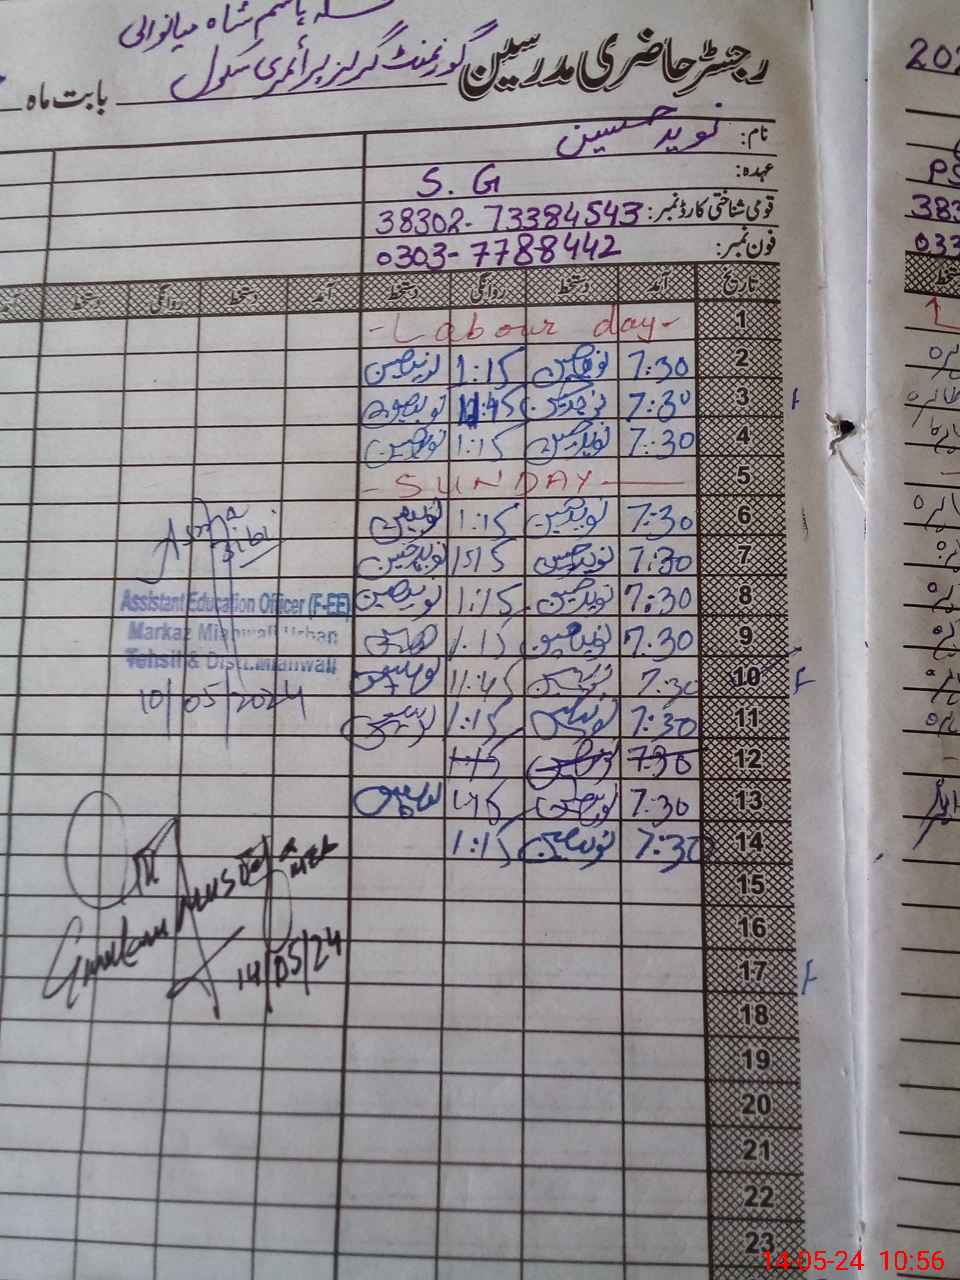 ہاسم شاہ میانوالی
رجسٹر حاضری مدرسین گورنمنٹ گرلز پرائمری سکول بابت ماہ
نام: نوید حسین
عہدہ: S. G
قومی شناختی کارڈ نمبر: 38302-73384543
فون نمبر: 0303-7788442
تاریخ آمد دستخط روانگی دستخط آمد دستخط روانگی دستخط
1 -Labour day-
2 7:30 نوید حسین 1:15 نوید حسین
3 7:30 نوید حسین 11:45 نوید حسین
4 7:30 نوید حسین 1:15 نوید حسین
5 -SUNDAY-
6 7:30 نوید حسین 1:15 نوید حسین
7 7:30 نوید حسین 1:15 نوید حسین
8 7:30 نوید حسین 1:15 نوید حسین
9 7:30 نوید حسین 1:15
10 7:30 نوید حسین 11:45 نوید حسین
11 7:30 نوید حسین 1:15 نوید حسین
12 7:30 نوید حسین 1:15
13 7:30 نوید حسین 1:15 نوید حسین
14 7:30 نوید حسین 1:15
15
16
17
18
19
20
21
22
23
Bibi
Assistant Education Officer (F-EE)
Markaz Mianwali Urban
Tehsil & Distt. Mianwali
10/05/2024
14/05/24
202
PS
383
033
14-05-24 10:56